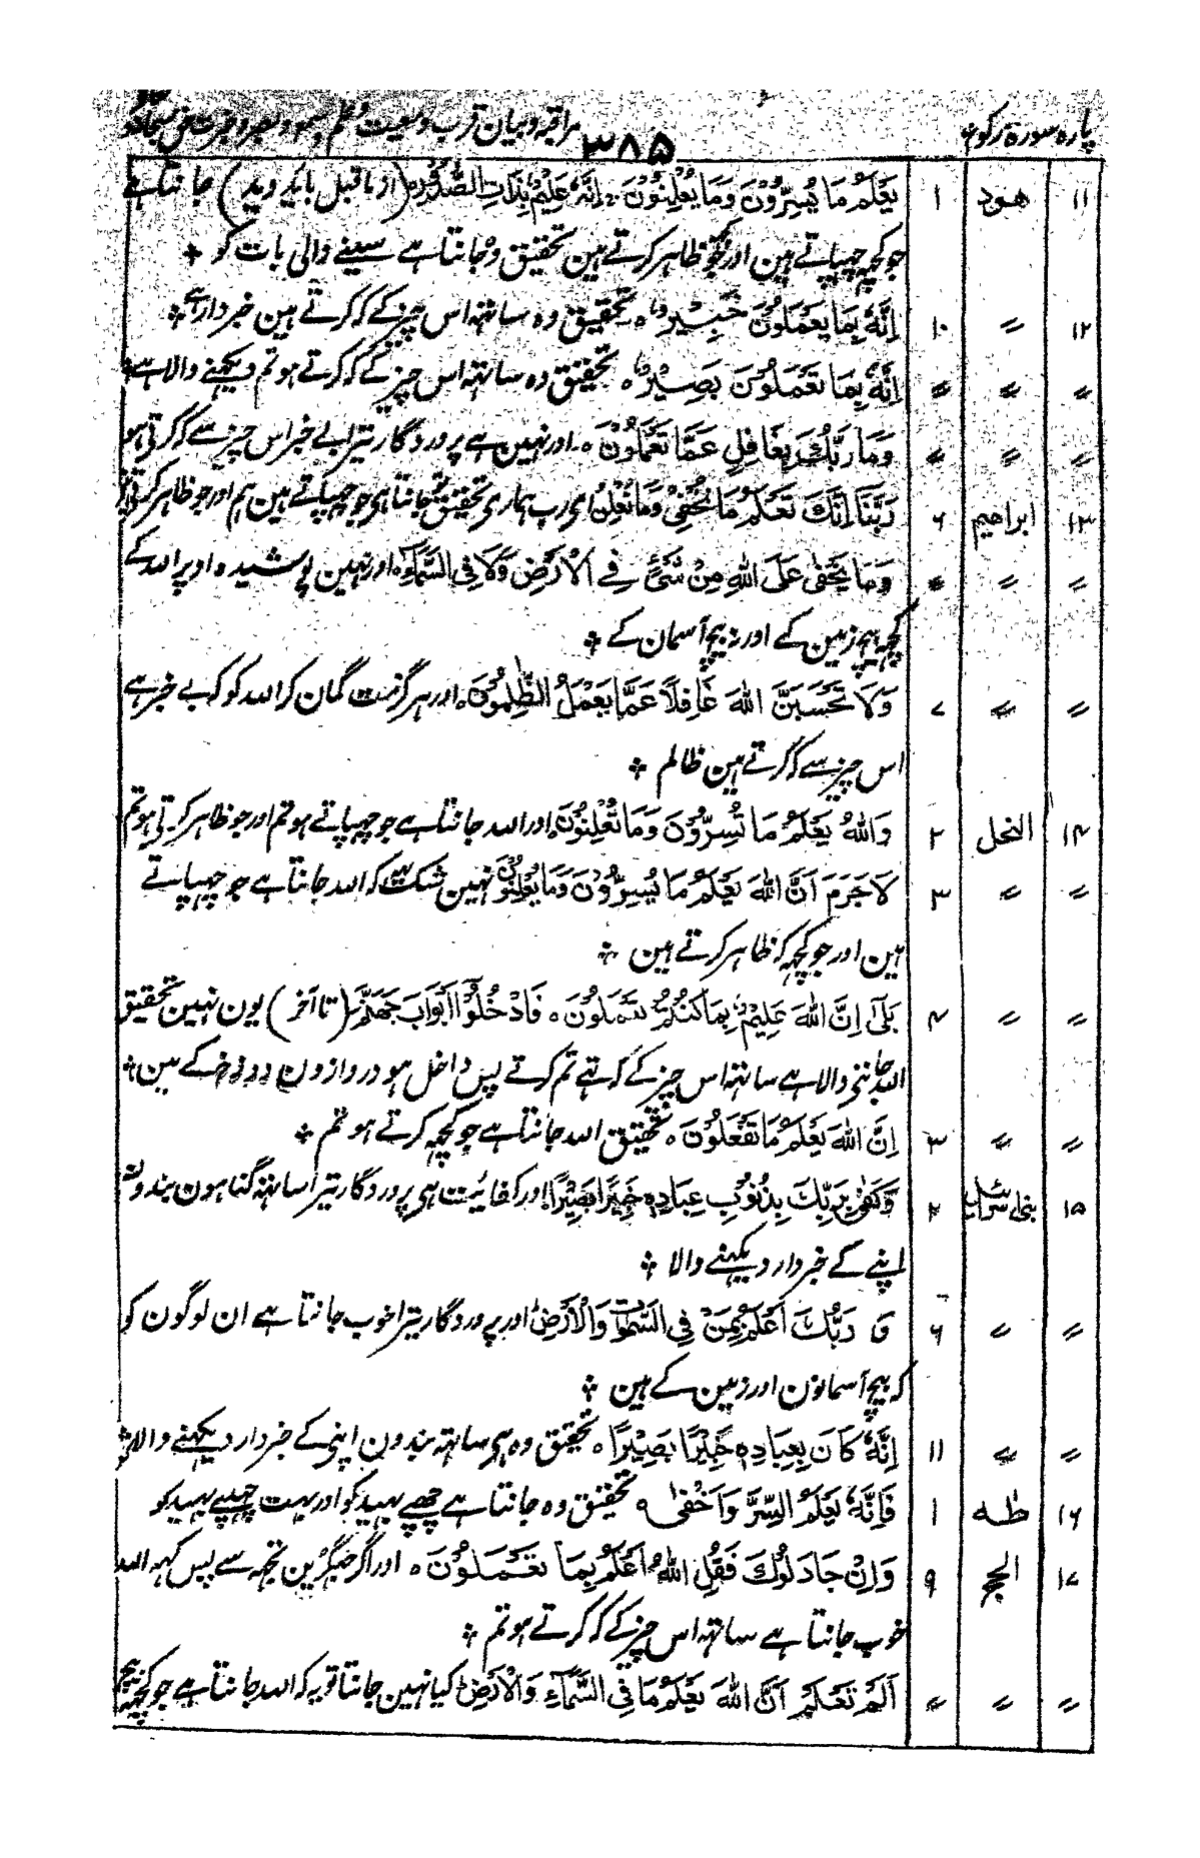 پارہ سورۃ رکوع ۳۸۵ مراقبہ و بیان قرب و معیت و علم و سمع و بصر و
۱۱ ھود ۱ یَعْلَمُ مَا یُسِرُّوْنَ وَمَا یُعْلِنُوْنَ ۔ اِنَّهٗ عَلِیْمٌۢ بِذَاتِ الصُّدُوْرِ (از ماقبل باید دید) جانتا ہے
جو کچھ چھپاتے ہین اور جو ظاہر کرتے ہین تحقیق وہ جانتا ہے سینے والی بات کو ❊
۱۲ 〃 ۱۰ اِنَّهٗ بِمَا یَعْمَلُوْنَ خَبِیْرٌ ہ تحقیق وہ ساتہہ اس چیز کے کہ کرتے ہین خبردار ہے ❊
〃 〃 〃 اِنَّهٗ بِمَا تَعْمَلُوْنَ بَصِیْرٌ ہ تحقیق وہ ساتہہ اس چیز کے کہ کرتے ہو تم دیکہنے والا ہے ❊
〃 〃 〃 وَمَا رَبُّكَ بِغَافِلٍ عَمَّا تَعْمَلُوْنَ ہ اور نہین ہے پروردگار تیرا بے خبر اس چیز سے کہ کرتی ہو
۱۳ ابراھیم ۶ رَبَّنَا اِنَّكَ تَعْلَمُ مَا نُخْفِیْ وَمَا نُعْلِنُ ای رب ہماری تحقیق تو جانتا ہی جو چھپاتے ہین ہم اور جو ظاہر کرتی
〃 〃 〃 وَمَا یَخْفٰی عَلَی اللّٰهِ مِنْ شَیْءٍ فِے الْاَرْضِ وَلَا فِی السَّمَآءِ اور نہین پوشیدہ اوپر اللہ کے
کچھ بیچ زمین کے اور نہ بیچ آسمان کے ❊
〃 〃 ۷ وَلَا تَحْسَبَنَّ اللّٰهَ غَافِلًا عَمَّا یَعْمَلُ الظّٰلِمُوْنَ ہ اور ہرگز مت گمان کر اللہ کو کہ بے خبر ہے
اس چیز سے کہ کرتے ہین ظالم ❊
۱۴ النحل ۲ وَاللّٰهُ یَعْلَمُ مَا تُسِرُّوْنَ وَمَا تُعْلِنُوْنَ اور اللہ جانتا ہے جو چھپاتے ہو تم اور جو ظاہر کرتی ہو تم
〃 〃 ۳ لَا جَرَمَ اَنَّ اللّٰهَ یَعْلَمُ مَا یُسِرُّوْنَ وَمَا یُعْلِنُوْنَ نہین شک ہے کہ اللہ جانتا ہے جو چھپاتے
ہین اور جو کچھ کہ ظاہر کرتے ہین ❊
〃 〃 ۴ بَلٰٓی اِنَّ اللّٰهَ عَلِیْمٌۢ بِمَا كُنْتُمْ تَعْمَلُوْنَ ہ فَادْخُلُوْٓا اَبْوَابَ جَهَنَّمَ (تا آخر) یون نہین تحقیق
اللہ جاننی والا ہے ساتہہ اس چیز کے کہ تہے تم کرتے پس داخل ہو دروازون دوزخ کے مین ❊
〃 〃 ۳ اِنَّ اللّٰهَ یَعْلَمُ مَا تَفْعَلُوْنَ ہ تحقیق اللہ جانتا ہے جو کچھ کرتے ہو تم ❊
۱۵ بنی اسرائیل ۲ وَكَفٰی بِرَبِّكَ بِذُنُوْبِ عِبَادِهٖ خَبِیْرًا بَصِیْرًا اور کفایت ہی پروردگار تیرا ساتہہ گناہون بندون
اپنے کے خبردار دیکہنے والا ❊
〃 〃 ۶ وَ رَبُّكَ اَعْلَمُ بِمَنْ فِی السَّمٰوٰتِ وَالْاَرْضِ اور پروردگار تیرا خوب جانتا ہے ان لوگون کو
کہ بیچ آسمانون اور زمین کے ہین ❊
〃 〃 ۱۱ اِنَّهٗ كَانَ بِعِبَادِهٖ خَبِیْرًا بَصِیْرًا ہ تحقیق وہ ہی ساتہہ بندون اپنی کے خبردار دیکہنے والا ❊
۱۶ طٰہ ۱ فَاِنَّهٗ یَعْلَمُ السِّرَّ وَاَخْفٰی ہ تحقیق وہ جانتا ہے چھپے بہید کو اور بہت چھپے بہید کو
۱۷ الحج ۹ وَاِنْ جَادَلُوْكَ فَقُلِ اللّٰهُ اَعْلَمُ بِمَا تَعْمَلُوْنَ ہ اور اگر جہگڑین تجہہ سے پس کہہ اللہ
خوب جانتا ہے ساتہہ اس چیز کے کہ کرتے ہو تم ❊
〃 〃 〃 اَلَمْ تَعْلَمْ اَنَّ اللّٰهَ یَعْلَمُ مَا فِی السَّمَآءِ وَالْاَرْضِ کیا نہین جانتا تو یہ کہ اللہ جانتا ہے جو کچھ بیچ